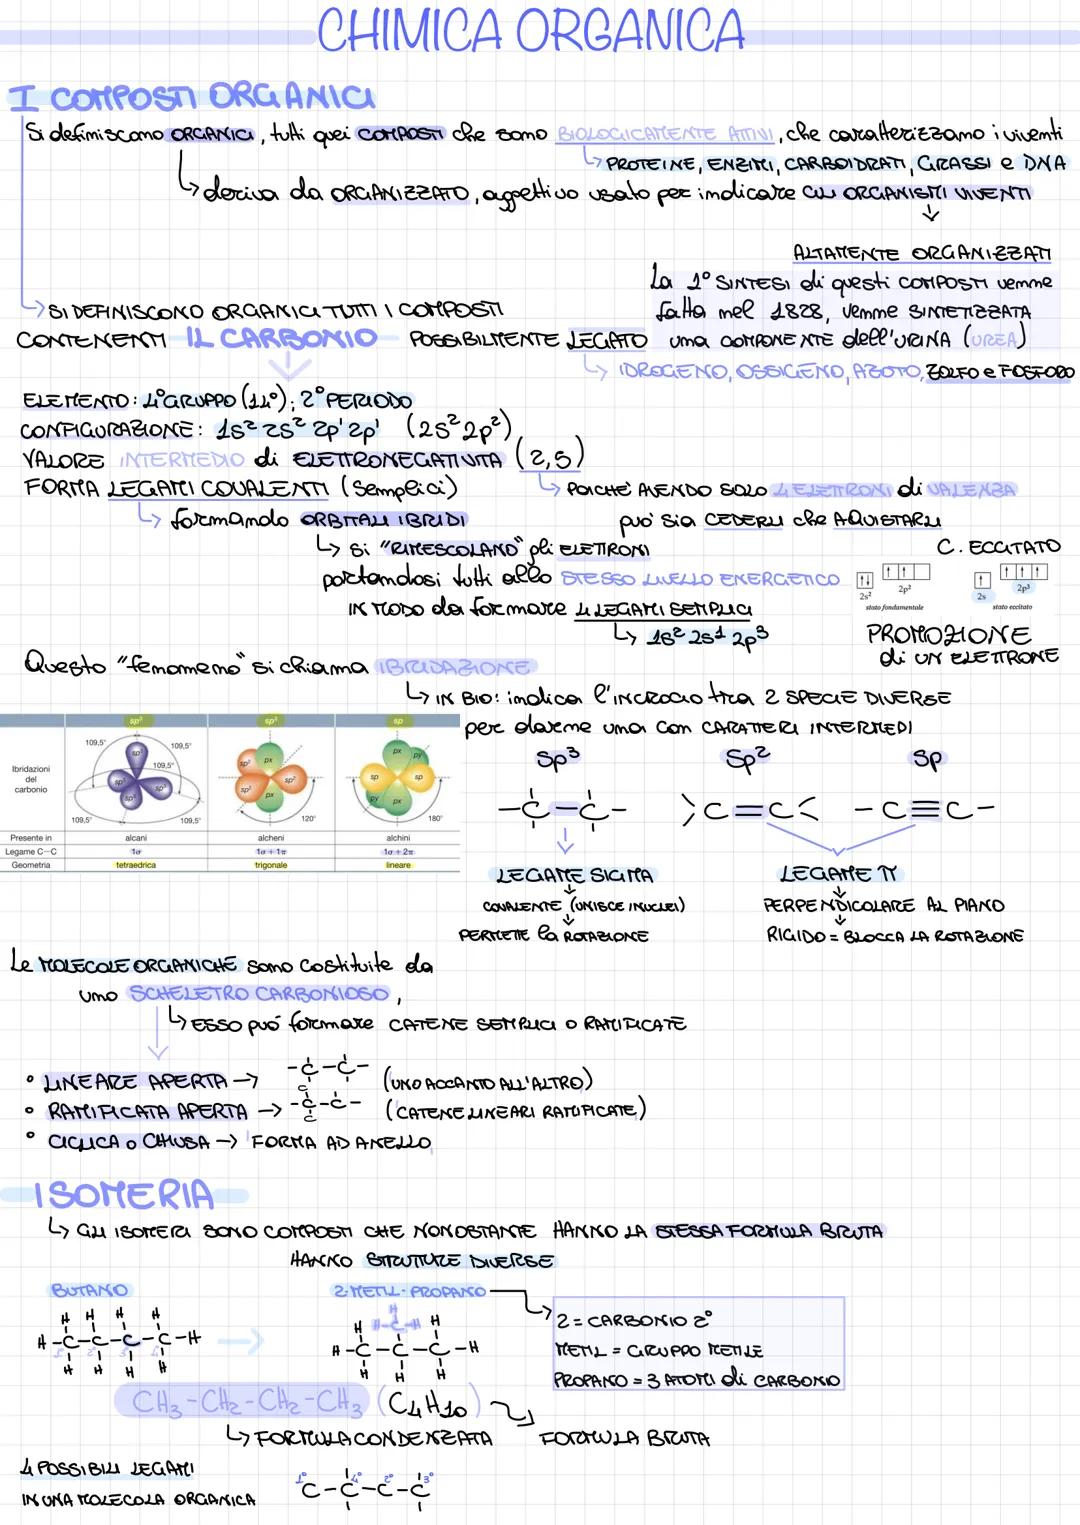 CHIMICA ORGANICA
I COMPOSTI ORGANICI
Si definiscono ORGANICI, tutti quei COMPOSTI che sono BIOLOGICAMENTE ATTIVI, che caratterizzano i viventi
↳ PROTEINE, ENZIMI, CARBOIDRATI, GRASSI e DNA
↳ deriva da ORGANIZZATO, aggettivo usato per indicare GLI ORGANISMI VIVENTI
↓
ALTAMENTE ORGANIZZATI
La 1° SINTESI di questi COMPOSTI venne
fatta nel 1828, venne SINTETIZZATA
una COMPONENTE dell'URINA (UREA)
↳ SI DEFINISCONO ORGANICI TUTTI I COMPOSTI
CONTENENTI IL CARBONIO POSSIBILMENTE LEGATO
↳ IDROGENO, OSSIGENO, AZOTO, ZOLFO e FOSFORO
ELEMENTO: 4° GRUPPO (14°); 2° PERIODO
CONFIGURAZIONE: 1s² 2s² 2p¹ 2p¹ (2s² 2p²)
VALORE INTERMEDIO di ELETTRONEGATIVITA (2,5)
↳ POICHE' AVENDO SOLO 4 ELETTRONI di VALENZA
può sia CEDERLI che AQUISTARLI
FORMA LEGAMI COVALENTI (semplici)
↳ formando ORBITALI IBRIDI
↳ si "RIMESCOLANO" gli ELETTRONI
portandosi tutti allo STESSO LIVELLO ENERGETICO
IN MODO da formare 4 LEGAMI SEMPLICI
↳ 1s² 2s¹ 2p³
C. ECCITATO
2s² 2p² 2s 2p³
stato fondamentale stato eccitato
PROMOZIONE
di UN ELETTRONE
Questo "fenomeno" si chiama IBRIDAZIONE
↳ IN BIO: indica l'INCROCIO tra 2 SPECIE DIVERSE
per darne una con CARATTERI INTERMEDI
sp³ sp² sp
Ibridazioni
del
carbonio
109,5° 109,5° 109,5° 109,5° 109,5°
sp³ sp³ sp³ sp³
sp² px sp² sp² px 120°
px py sp sp py px 180°
Presente in alcani alcheni alchini
Legame C—C 1σ 1σ + 1π 1σ + 2π
Geometria tetraedrica trigonale lineare
Sp³ Sp² Sp
-C-C- >C=C< -C≡C-
LEGAME SIGMA LEGAME π
COVALENTE (UNISCE I NUCLEI) PERPENDICOLARE AL PIANO
PERMETTE la ROTAZIONE RIGIDO = BLOCCA LA ROTAZIONE
Le MOLECOLE ORGANICHE sono costituite da
uno SCHELETRO CARBONIOSO,
↳ ESSO può formare CATENE SEMPLICI O RAMIFICATE
° LINEARE APERTA → -C-C- (UNO ACCANTO ALL'ALTRO)
° RAMIFICATA APERTA → C -C-C- C (CATENE LINEARI RAMIFICATE)
° CICLICA O CHIUSA → FORMA AD ANELLO
ISOMERIA
↳ GLI ISOMERI SONO COMPOSTI CHE NONOSTANTE HANNO LA STESSA FORMULA BRUTA
HANNO STRUTTURE DIVERSE
BUTANO 2-METIL-PROPANO
H H H H
H-C-C-C-C-H
1° 2° 3° 4°
H H H H
H
H-C-H
H H
H-C-C-C-H
H H H
2 = CARBONIO 2°
METIL = GRUPPO METILE
PROPANO = 3 ATOMI di CARBONIO
CH₃-CH₂-CH₂-CH₃ (C₄H₁₀)
↳ FORMULA CONDENZATA FORMULA BRUTA
4 POSSIBILI LEGAMI
IN UNA MOLECOLA ORGANICA
1° 4° 2° 3°
C-C-C-C